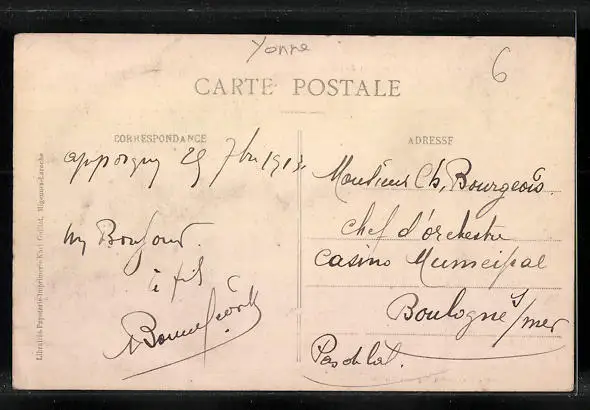 Yonne
6
CARTE POSTALE
CORRESPONDANCE
ADRESSE
Appoigny 25 7bre 1913.
Bonjour
à
Monsieur Ch. Bourgeois
chef d'orchestre
Casino Municipal
Boulogne s/mer
Pas de Cal.
Librairie-Papeterie-Imprimerie Karl Guillot, Migennes-Laroche